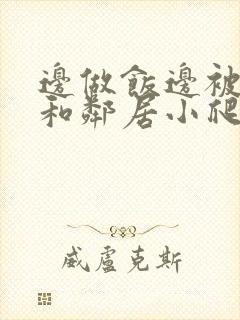 邊做飯邊被
和鄰居小爬
威盧克斯